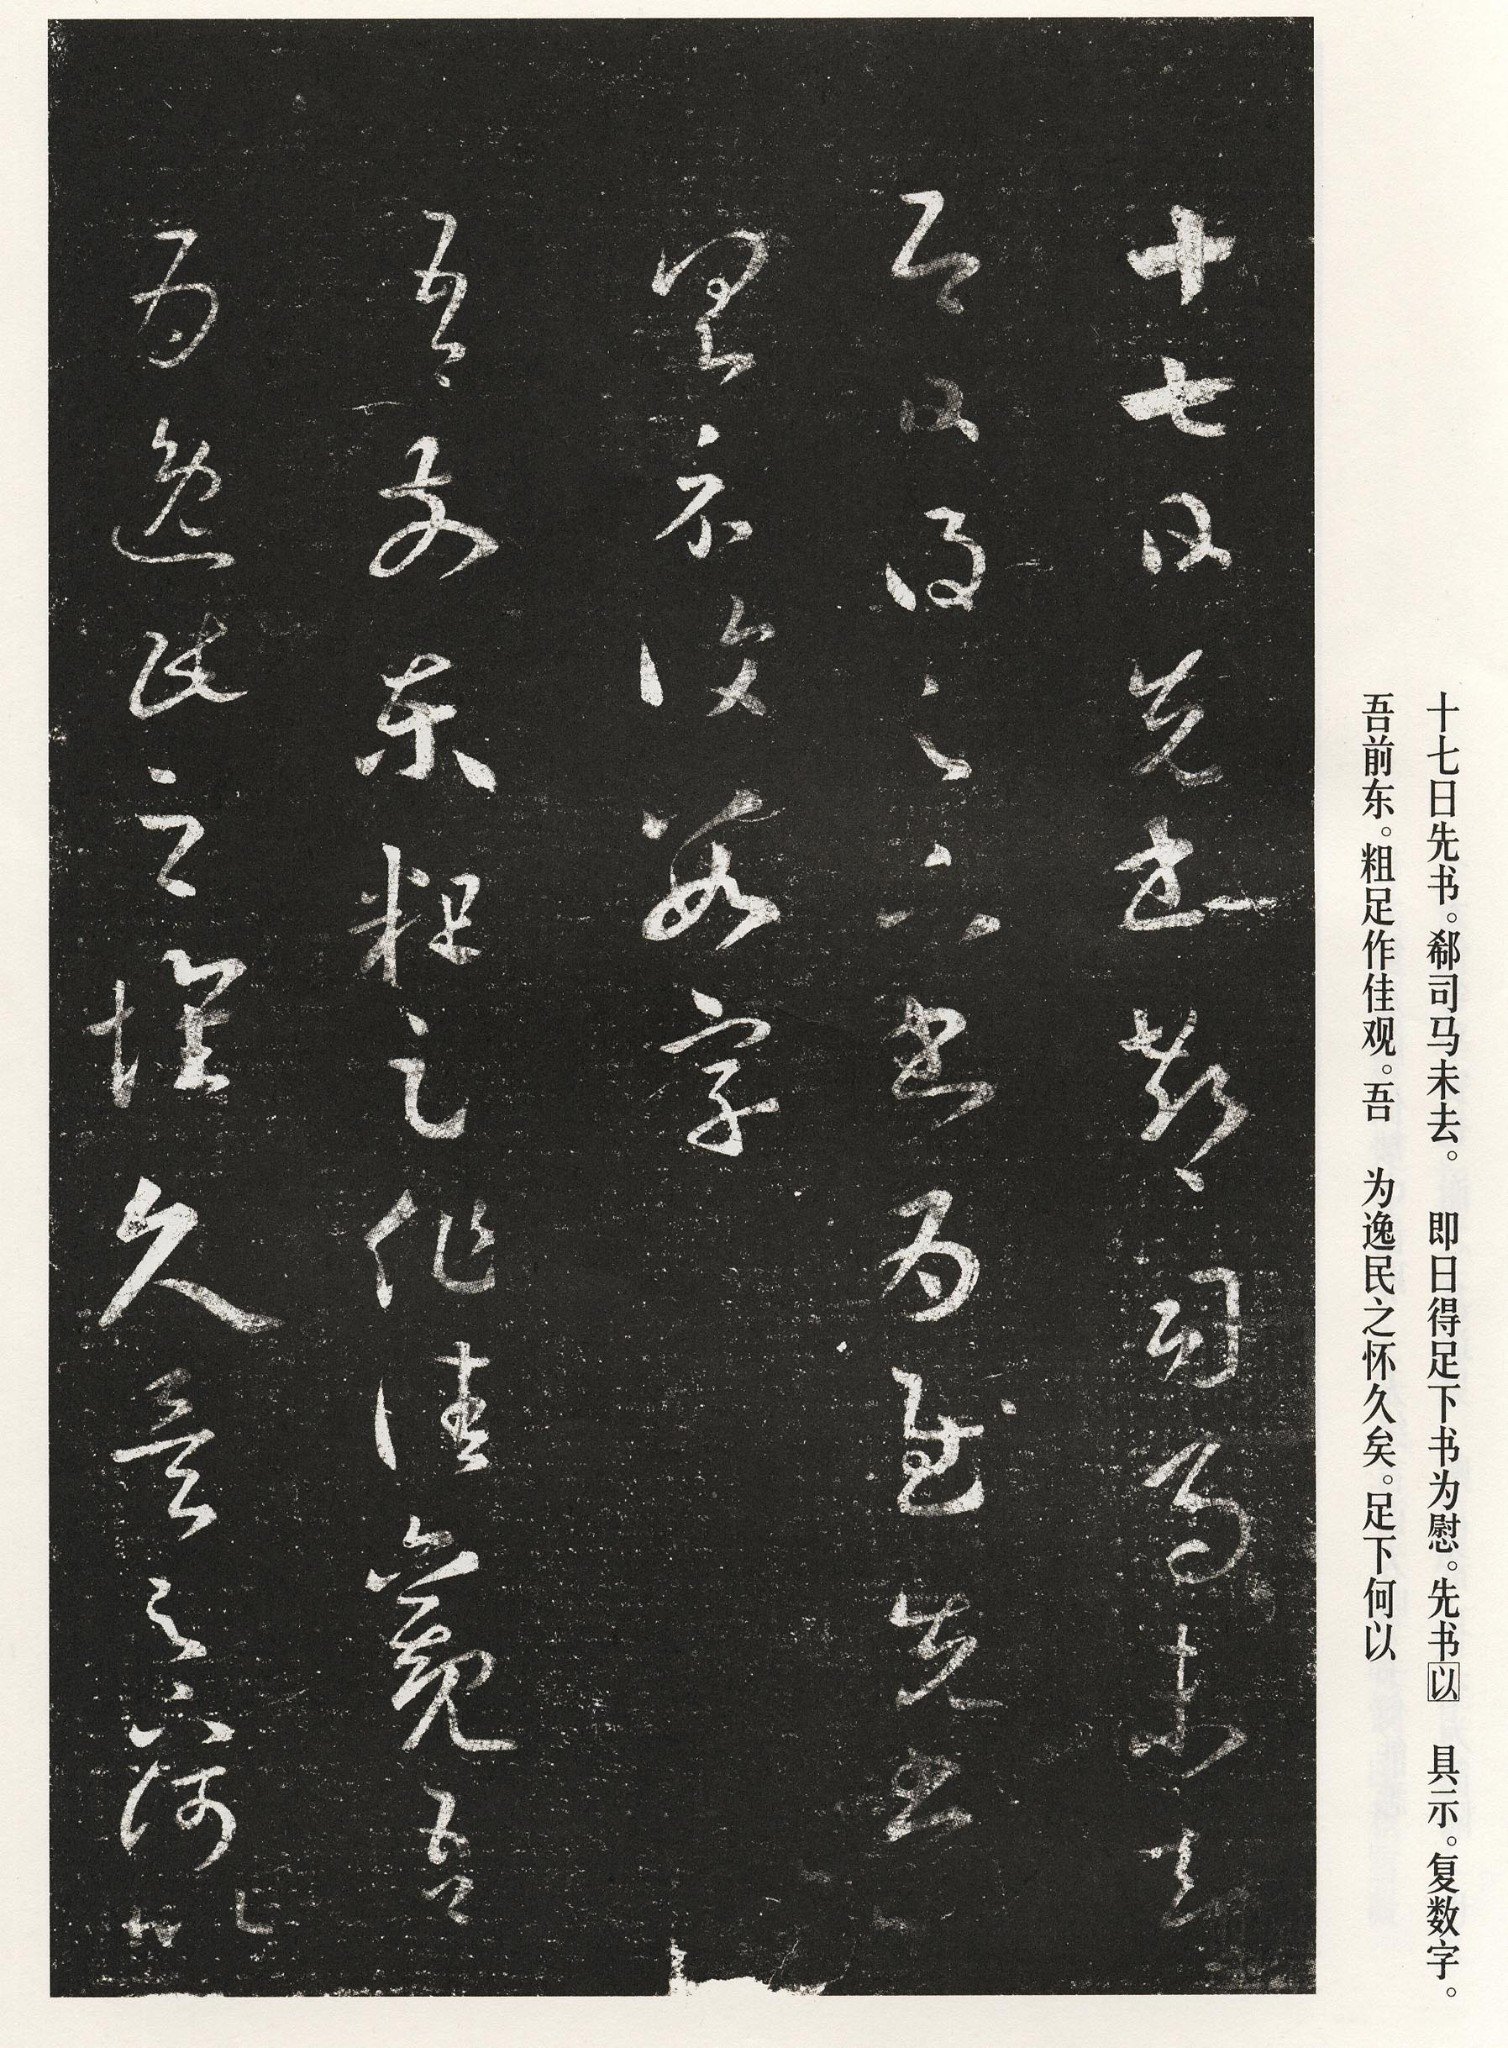 十七日先书郗司马未去
即日得足下书为慰先书以
具示复数字
吾前东粗足作佳观吾
为逸民之怀久矣足下何以
十七日先书。郗司马未去。　即日得足下书为慰。先书以　具示。复数字。
吾前东。粗足作佳观。吾　为逸民之怀久矣。足下何以